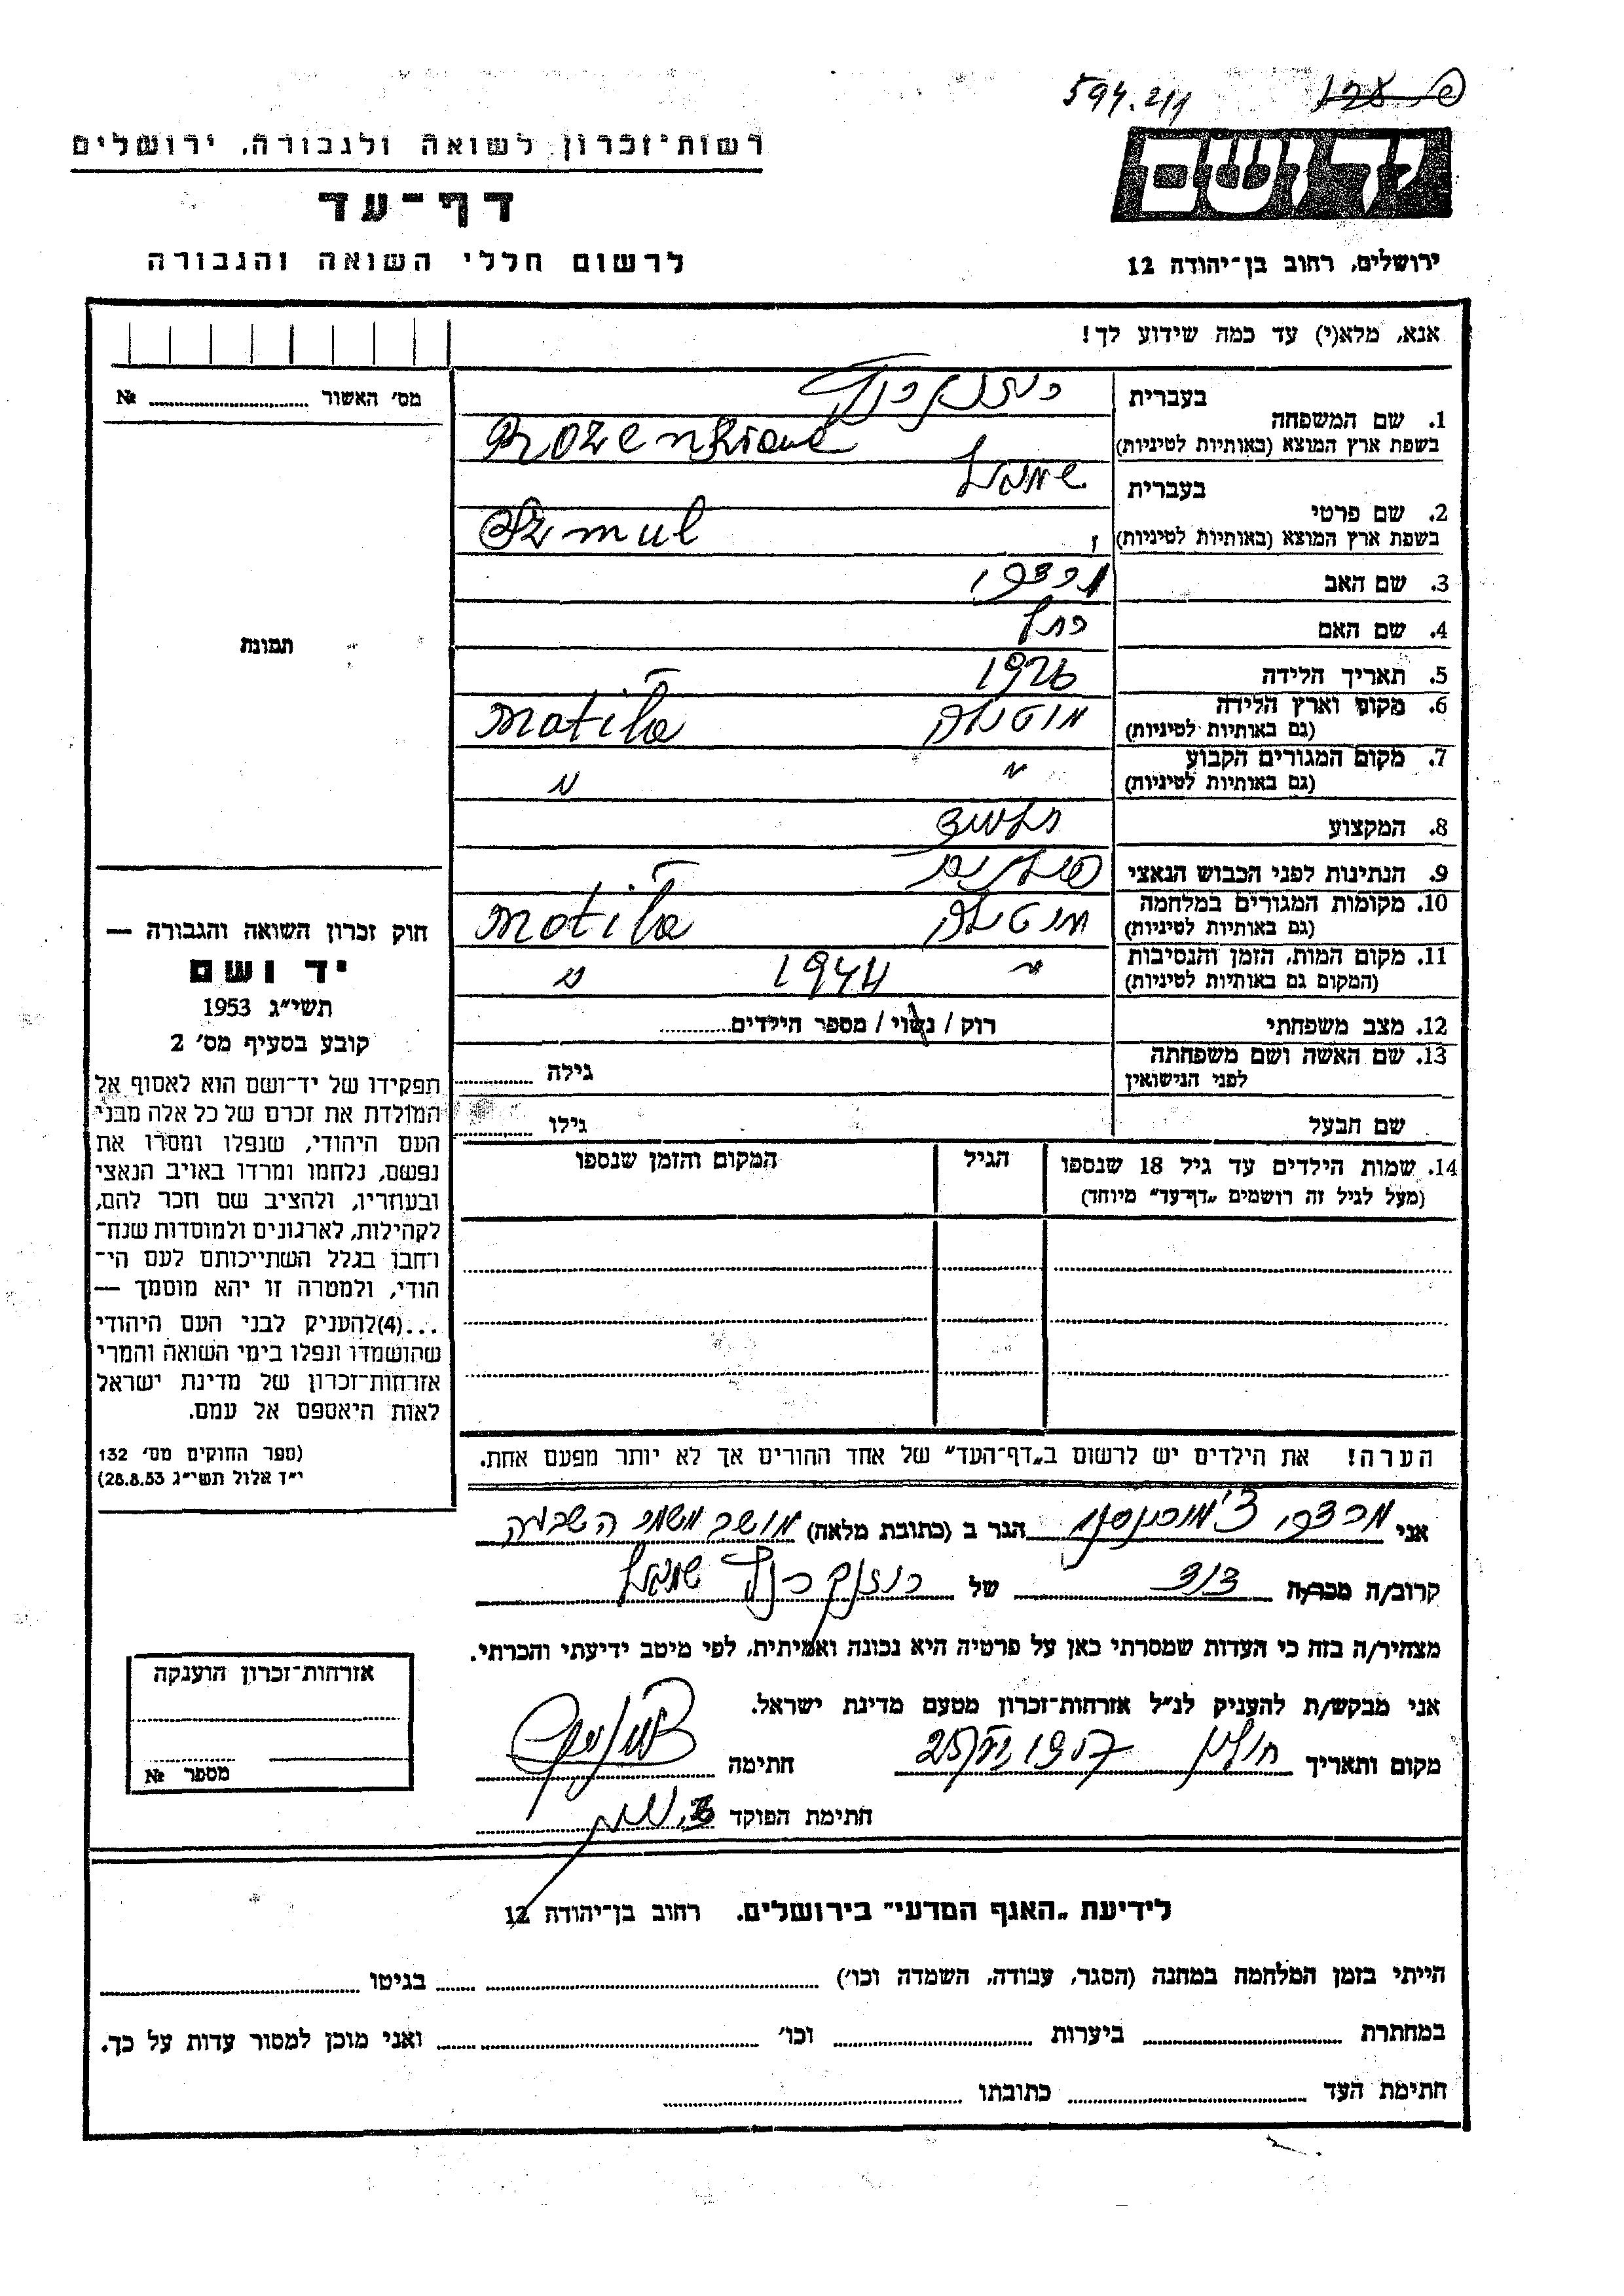 594.211
יד ושם
רשות־זכרון לשואה ולגבורה, ירושלים
דף־עד
לרשום חללי השואה והגבורה
ירושלים, רחוב בן־יהודה 12
אנא, מלא(י) עד כמה שידוע לך!
מס׳ האשור №
תמונת
1. שם המשפחה
בעברית
בשפת ארץ המוצא (באותיות לטיניות)
2. שם פרטי
בעברית שמואל
בשפת ארץ המוצא (באותיות לטיניות) Szmul
3. שם האב
4. שם האם רחל
5. תאריך הלידה 1926
6. מקום וארץ הלידה
(גם באותיות לטיניות) Motila
7. מקום המגורים הקבוע
(גם באותיות לטיניות) " "
8. המקצוע
9. הנתינות לפני הכבוש הנאצי
10. מקומות המגורים במלחמה
(גם באותיות לטיניות) Motila
11. מקום המות, הזמן והנסיבות
(המקום גם באותיות לטיניות) " 1944 "
12. מצב משפחתי רוק / נשוי / מספר הילדים
13. שם האשה ושם משפחתה
לפני הנישואין גילה
שם הבעל גילו
14. שמות הילדים עד גיל 18 שנספו הגיל המקום והזמן שנספו
(מעל לגיל זה רושמים „דף־עד" מיוחד)
הערה! את הילדים יש לרשום ב„דף־העד" של אחד ההורים אך לא יותר מפעם אחת.
חוק זכרון השואה והגבורה —
יד ושם
תשי״ג 1953
קובע בסעיף מס׳ 2
תפקידו של יד־ושם הוא לאסוף אל
המולדת את זכרם של כל אלה מבני
העם היהודי, שנפלו ומסרו את
נפשם, נלחמו ומרדו באויב הנאצי
ובעוזריו, ולהציב שם וזכר להם,
לקהילות, לארגונים ולמוסדות שנח־
רחבו בגלל השתייכותם לעם הי־
הודי, ולמטרה זו יהא מוסמך —
...(4)להעניק לבני העם היהודי
שהושמדו ונפלו בימי השואה והמרי
אזרחות־זכרון של מדינת ישראל
לאות היאספם אל עמם.
(ספר החוקים מס׳ 132
י״ד אלול תשי״ג 28.8.53)
אני מרדכי הגר ב (כתובת מלאה) מושב משמר השבעה
קרוב/ה מכר/ה דוד של שמואל
מצהיר/ה בזה כי העדות שמסרתי כאן על פרטיה היא נכונה ואמיתית, לפי מיטב ידיעתי והכרתי.
אני מבקש/ת להעניק לנ״ל אזרחות־זכרון מטעם מדינת ישראל.
מקום ותאריך חולון חתימה
חתימת הפוקד
אזרחות־זכרון הוענקה
מספר №
לידיעת „האגף המדעי" בירושלים. רחוב בן־יהודה 12
הייתי בזמן המלחמה במחנה (הסגר, עבודה, השמדה וכו׳) בגיטו
במחתרת ביערות וכו׳ ואני מוכן למסור עדות על כך.
חתימת העד כתובתו